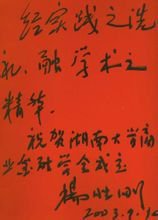 经实践之洗
礼，融学术之
精华。
祝贺湖南大学商
业金融学会成立
杨胜刚
2003.9.12